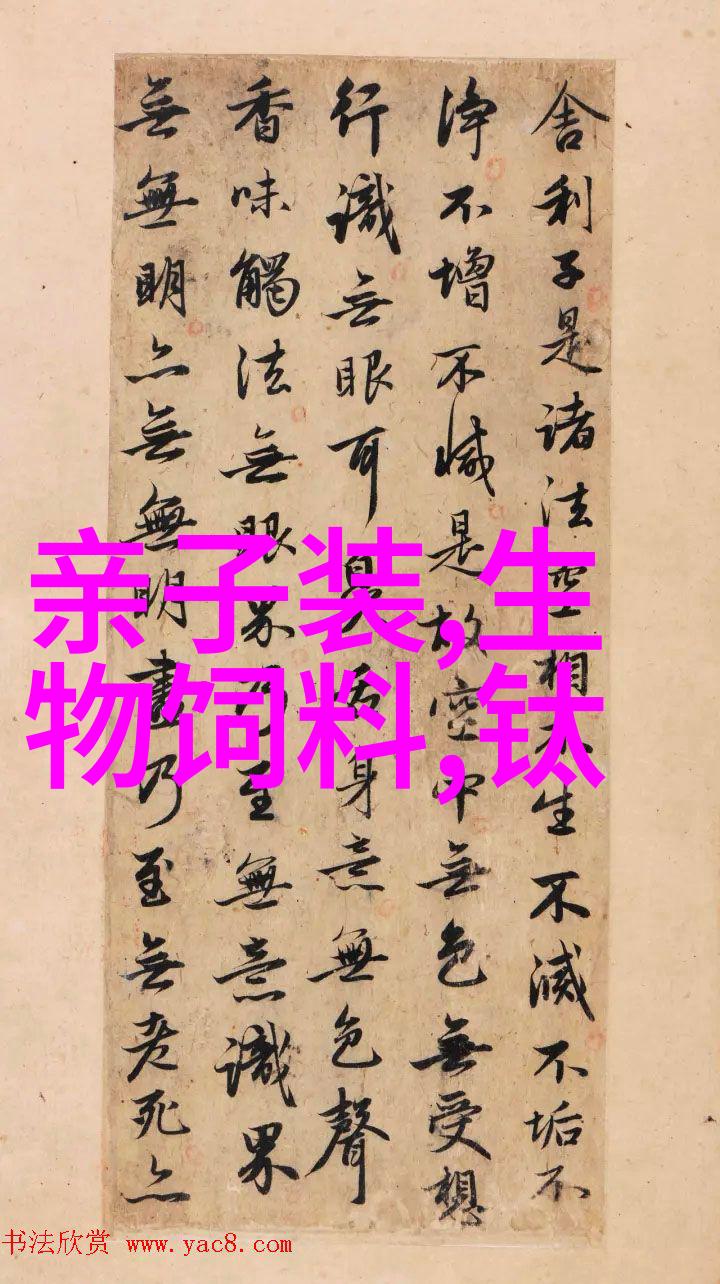 舍利子是諸法空相不生不滅不垢不
淨不增不減是故空中無色無受想
行識無眼耳鼻舌身意無色聲
香味觸法無眼界乃至無意識界
無無明亦無無明盡乃至無老死亦
亲子装,生
物饲料,钛
书法欣赏 www.yac8.com